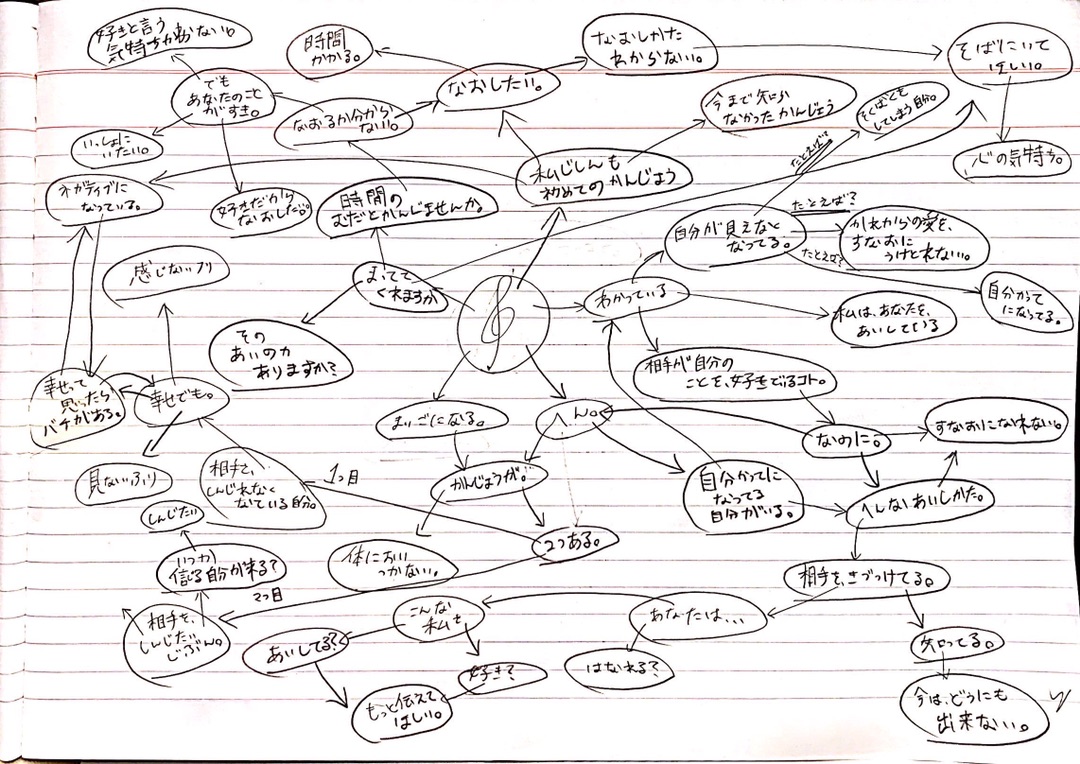 好きと言う
気持ちがおわない。
時間
かかる。
なおしたい。
なおしかた
わからない。
そばにいて
ほしい。
でも
あなたのこと
がすき。
なおるか分から
ない。
今まで知ら
なかったかんじょう
そくばくも
してしまう自分。
いっしょに
いたい。
心の気持ち。
ネガティブに
なっている。
好きだから
なおしたい。
時間の
むだとかんじませんか。
私じしんも
初めてのかんじょう
たとえば?
自分が見えなく
なってる。
たとえば?
かれからの愛を、
すなおに
うけとれない。
たとえば?
感じないフリ
まってて
くれますか
わかっている
自分かって
になってる。
私は、あなたを、
あいしている
その
あいのカ
ありますか?
相手が自分の
ことを、好きでいるコト。
幸せって
思ったら
バチがある。
幸せでも。
まいごになる。
へん。
なのに。
すなおになれない。
見ないふり
相手を、
しんじれなく
なている自分。
1つ目
かんじょうが。
自分かってに
なってる
自分がいる。
へんなあいしかた。
しんじたい
2つある。
体においい
つかない。
いつか
信る自分が来る?
相手を、きづつけてる。
2つ目
相手を、
しんじたい
じぶん。
こんな
私を
あなたは、、、
あいしてる?
好き?
はなれる?
知ってる。
もっと伝えて
ほしい。
今は、どうにも
出来ない。